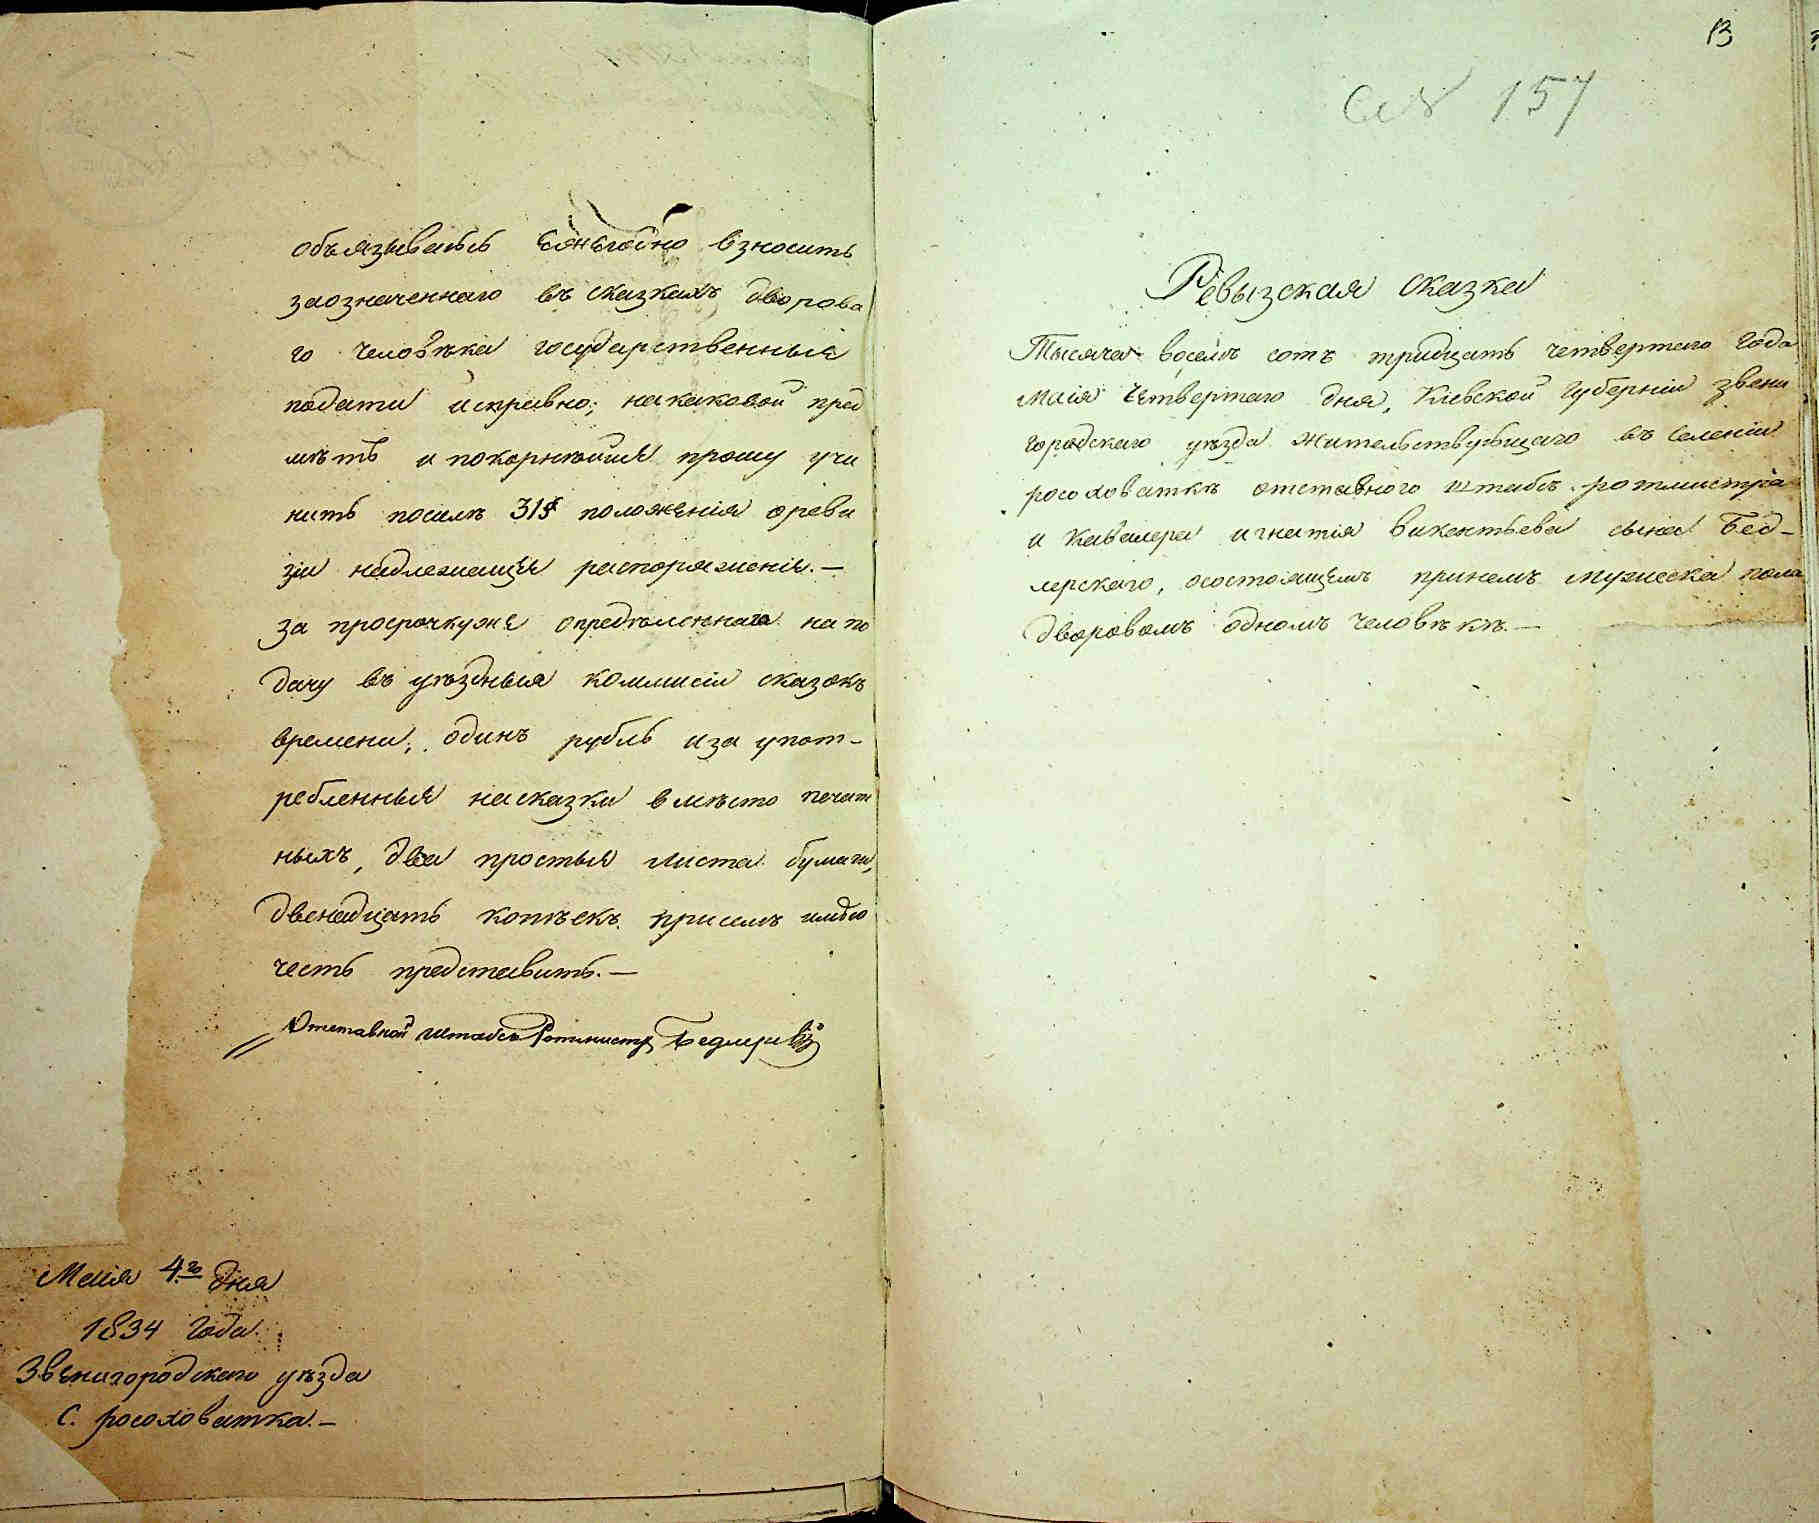 объязываюсь ежегодно взносить
заозначеннаго въ сказкахъ дворова
го человѣка государственныя
подати исправно; накаковой пред
мѣтъ и покорнѣйше прошу учи
нить посилѣ 315 положенія ореви
зіи надлежаще распоряженіе. —
За просрочкуже опредѣленнаго на по
дачу въ уѣздныя коммисіи сказокъ
времени, одинъ рубль иза упот-
ребленныя насказки вмѣсто печат
ныхъ, два простыя листа бумаги,
двенадцать копѣекъ присемъ имѣю
честь представить. —
Отставной Штабсъ Ротмистръ Бедлерскій
Маія 4го дня
1834 года.
Звенигородскаго уѣзда
с. росоховатка. —
13
№ 157
Ревызская сказка
Тысяча восемъ сотъ тридцать четвертаго года
Маія Четвертаго дня, Кіевской Губерніи звени
городскаго уѣзда жительствующаго въ селеніи
росоховаткѣ отставного штабсъ ротмистра
и Кавалера игнатія викентьева сына Бед-
лерскаго, осостоящемъ принемъ мужеска пола
дворовомъ одномъ человѣкѣ. —